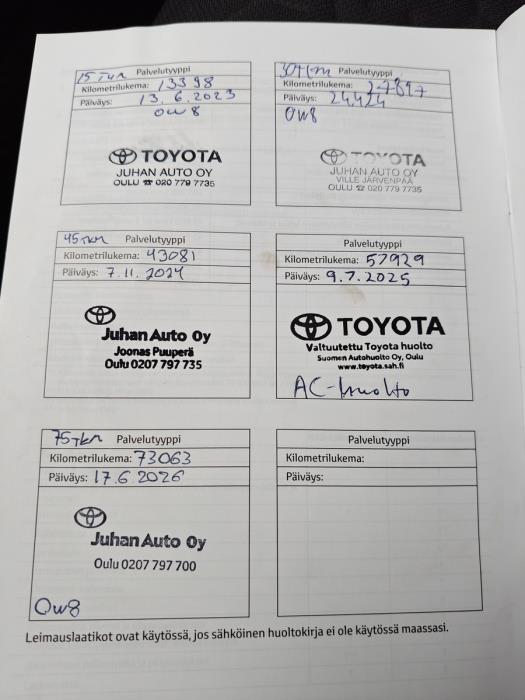 15 TKM Palvelutyyppi
Kilometrilukema: 13398
Päiväys: 13.6.2023
OW8
TOYOTA
JUHAN AUTO OY
OULU ☎ 020 779 7735
30TKM Palvelutyyppi
Kilometrilukema: 27817
Päiväys: 24.4.24
OW8
TOYOTA
JUHAN AUTO OY
VILLE JÄRVENPÄÄ
OULU ☎ 020 779 7735
45TKM Palvelutyyppi
Kilometrilukema: 43081
Päiväys: 7.11.2024
Juhan Auto Oy
Joonas Puuperä
Oulu 0207 797 735
Palvelutyyppi
Kilometrilukema: 57929
Päiväys: 9.7.2025
TOYOTA
Valtuutettu Toyota huolto
Suomen Autohuolto Oy, Oulu
www.toyota.sah.fi
AC-huolto
75TKM Palvelutyyppi
Kilometrilukema: 73063
Päiväys: 17.6.2026
Juhan Auto Oy
Oulu 0207 797 700
OW8
Palvelutyyppi
Kilometrilukema:
Päiväys:
Leimauslaatikot ovat käytössä, jos sähköinen huoltokirja ei ole käytössä maassasi.